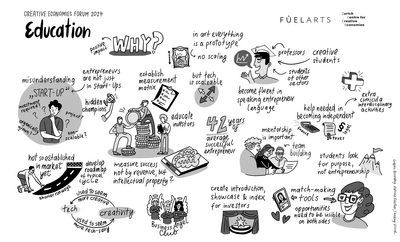 CREATIVE ECONOMIES FORUM 2024
Education
FÜELARTS
positive impact
WHY?
in art everything
is a prototype
no scaling
but tech
is scaleable
professors
creative
students
students
of other
sectors
become fluent in
speaking entrepreneur
language
extra
curricula
interdisciplinary
activities
misunderstanding
"START-UP"
scalable?
entrepreneurs
are not just
in Start-Ups
hidden
champions
establish
measurement
matrix
educate
investors
42 years
average
successful
entrepreneur
help needed in
becoming independent
TAXES
mentorship
is important
team
building
students look
for purpose,
not entrepreneurship
not so established
in market
yet
develop
roadmap
of typical
cycle
measure success
not by revenue, but
intellectual property?
used to seem
more creative
tech
creativity
used to seem
more tech-savvy
Business Angel
Club
create introduction,
showcase & index
for investors
match-making
tools
opportunities
need to be visible
on both sides